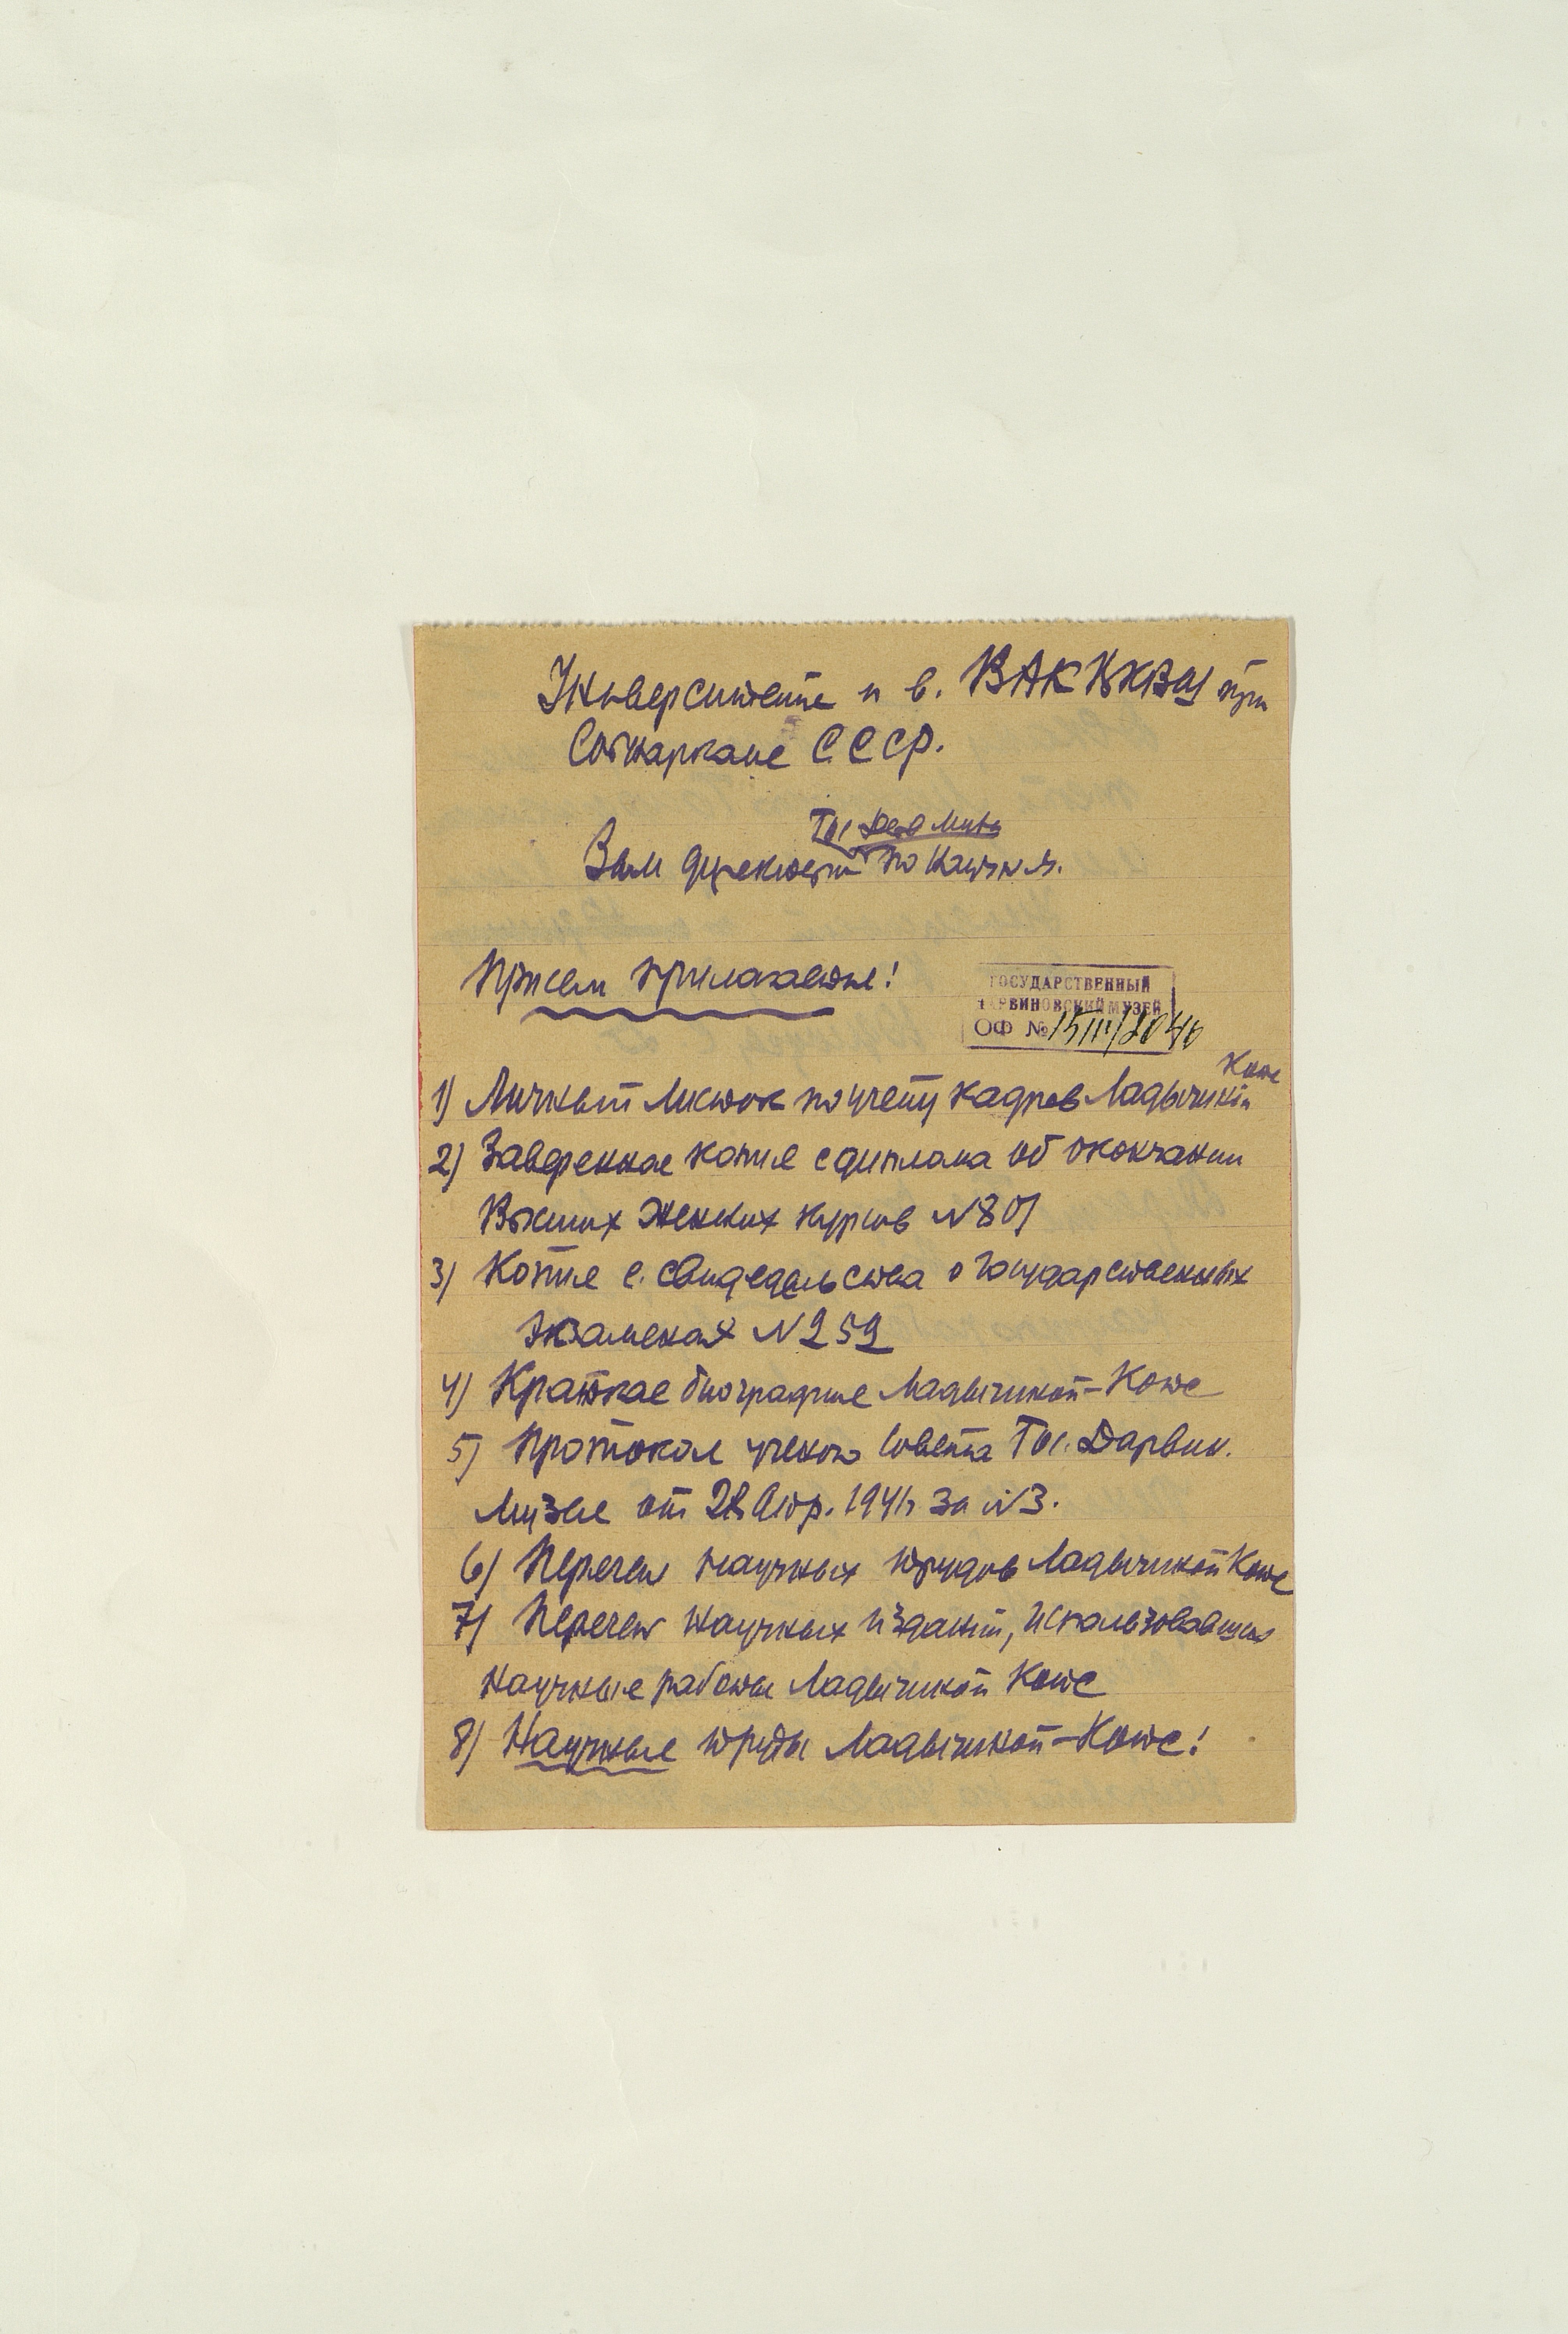 Университете и в. ВАК НКВШ при
Совнаркоме СССР.
Гос Дарв Музея
Зам директора по научн.
При сем прилагаются!
ГОСУДАРСТВЕННЫЙ
ДАРВИНОВСКИЙ МУЗЕЙ
ОФ № 15111/2040
Котс
1) Личный листок по учету кадров Ладыгиной
2) Заверенная копия с диплома об окончании
Высших Женских курсов N 801
3) Копия с. свидетельства о государственных
Экзаменах N 252
4) Краткая биография Ладыгиной-Котс
5) Протокол ученого Совета Гос. Дарвин.
Музея от 28 Апр. 1941г за N 3.
6) Перечень научных трудов Ладыгиной Котс
7) Перечень научных изданий, использовавших
научные работы Ладыгиной Котс
8) Научные труды Ладыгиной-Котс!